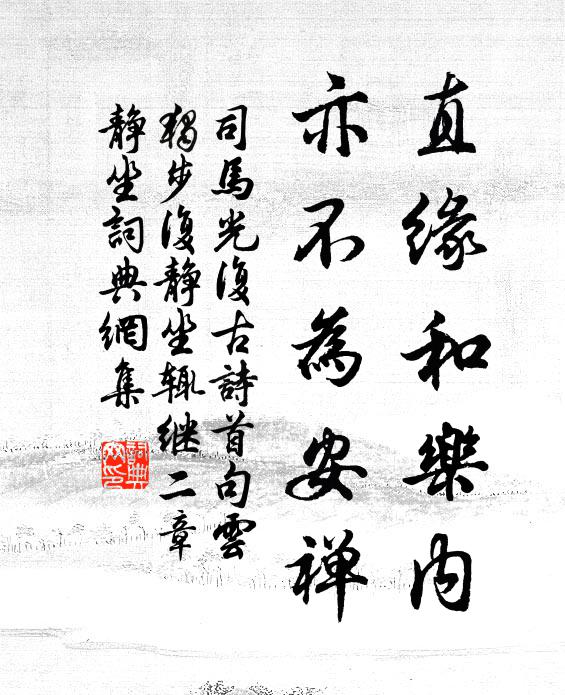 直缘和樂内
亦不為安禅
司馬光復古詩首句雲
獨步復靜坐輒继二章
靜坐詞典網集